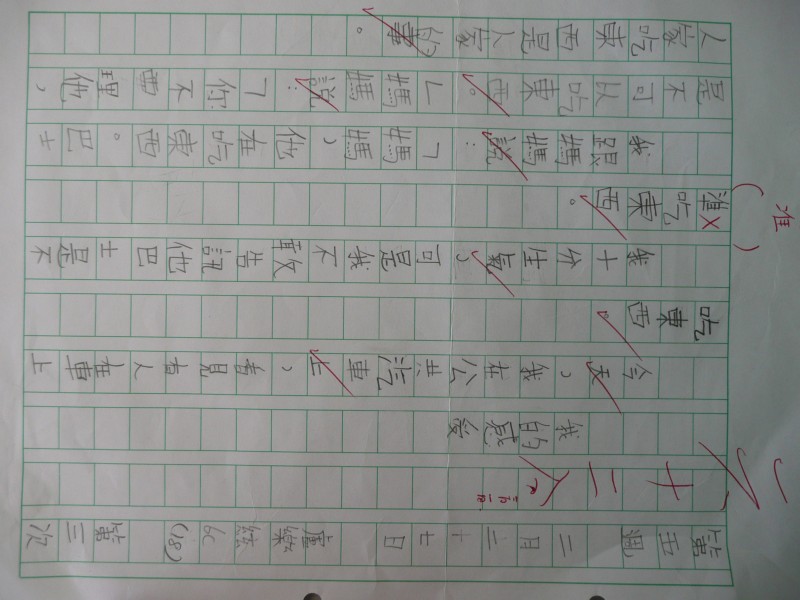 第五週 二月二十七日 盧樂 6C (18) 第三次
二十
我的感受
今天，我在公共汽車上，看見有人在車上
吃東西。
我十分生氣，可是我不敢告訴他巴士是不
準吃東西。
准
我跟媽媽說：「媽媽，他在吃東西。巴士
是不可以吃東西。」媽媽說：「你不要理他，
人家吃東西是人家的事。